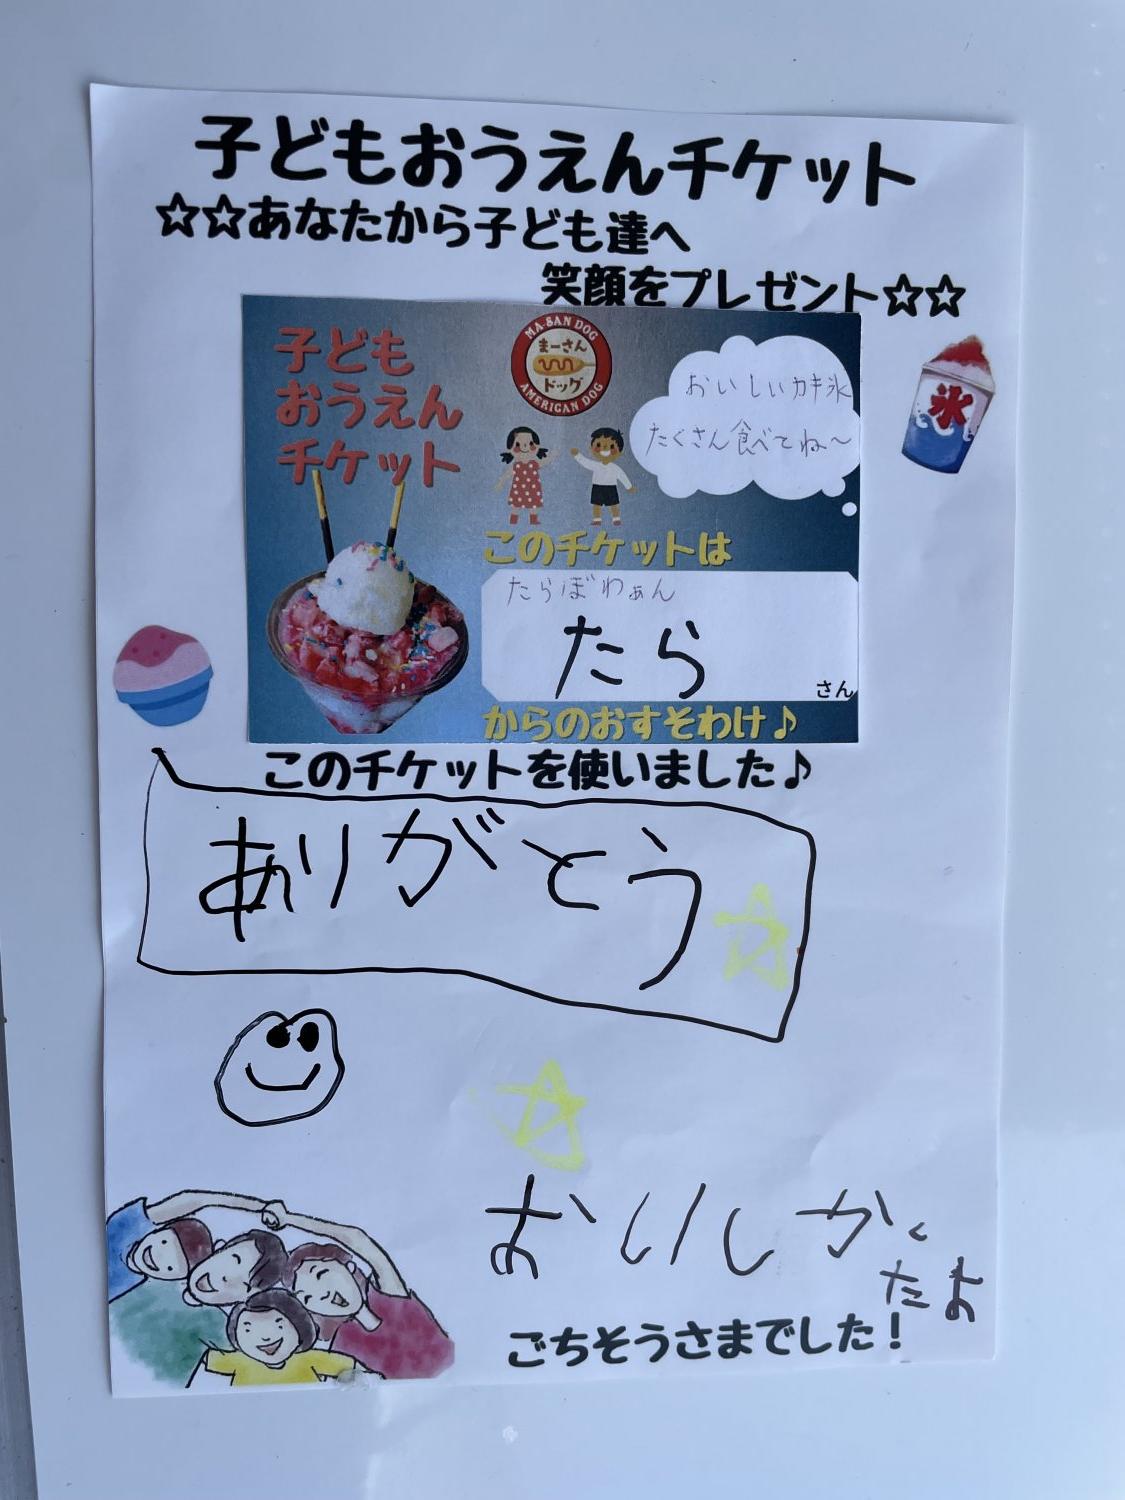 子どもおうえんチケット
☆☆あなたから子ども達へ
笑顔をプレゼント☆☆
子ども
おうえん
チケット
MA-SAN DOG
まーさん
ドッグ
AMERICAN DOG
おいしいカキ氷
たくさん食べてね〜
氷
このチケットは
たらぼわぁん
たら
さん
からのおすそわけ♪
このチケットを使いました♪
ありがとう
おいしかっ
たよ
ごちそうさまでした!